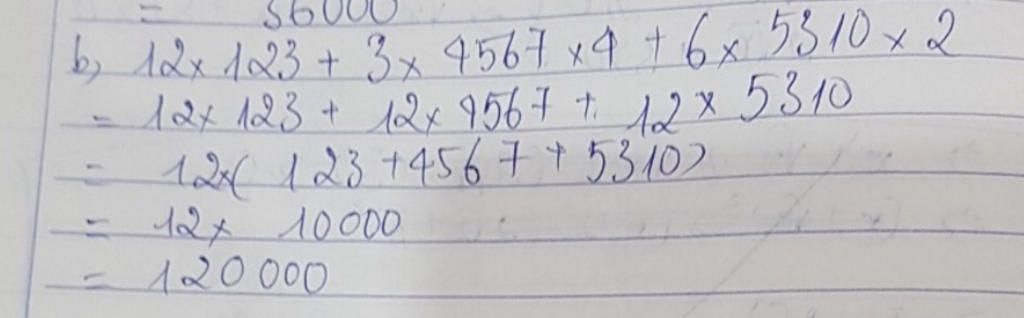 = 36000
b, 12 x 123 + 3 x 4567 x 4 + 6 x 5310 x 2
= 12 x 123 + 12 x 4567 + 12 x 5310
= 12 x ( 123 + 4567 + 5310 )
= 12 x 10000
= 120 000